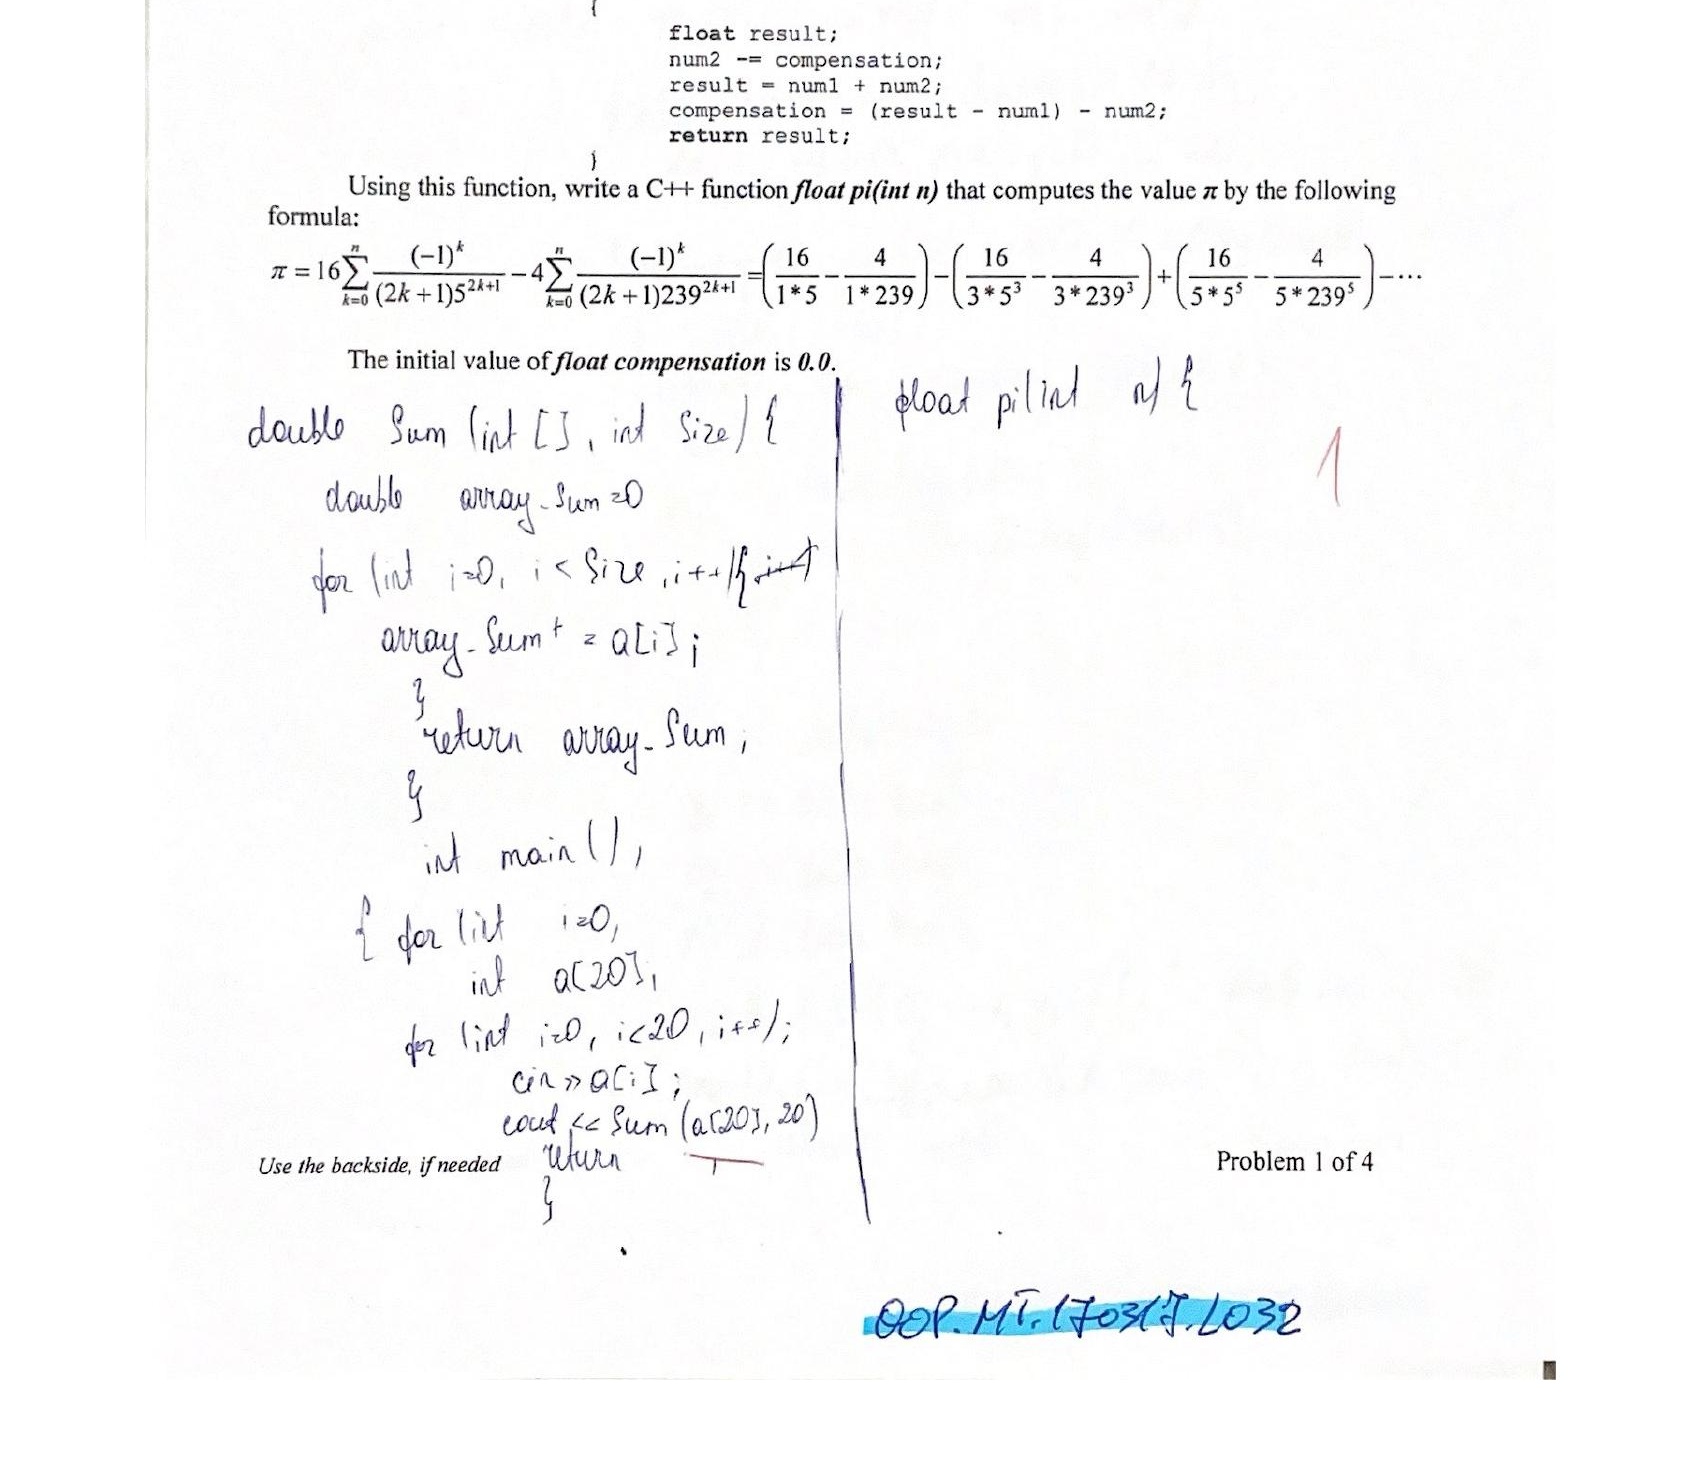 {
float result;
num2 -= compensation;
result = num1 + num2;
compensation = (result - num1) - num2;
return result;
}
Using this function, write a C++ function float pi(int n) that computes the value π by the following
formula:
π = 16 ∑_{k=0}^{n} (-1)^k / ((2k+1)5^{2k+1}) - 4 ∑_{k=0}^{n} (-1)^k / ((2k+1)239^{2k+1}) = (16/(1*5) - 4/(1*239)) - (16/(3*5^3) - 4/(3*239^3)) + (16/(5*5^5) - 4/(5*239^5)) - ...
The initial value of float compensation is 0.0.
double Sum (int [], int Size) {
double array_Sum =0
for (int i=0, i < Size, i++) {
array_Sum+ = a[i];
}
return array_Sum;
}
int main (),
{ for (int i=0,
int a[20],
for (int i=0, i<20, i++);
cin >> a[i];
cout << Sum (a[20], 20)
return
}
float pi(int n) {
1
Use the backside, if needed
Problem 1 of 4
OOP.MT.170317.L032